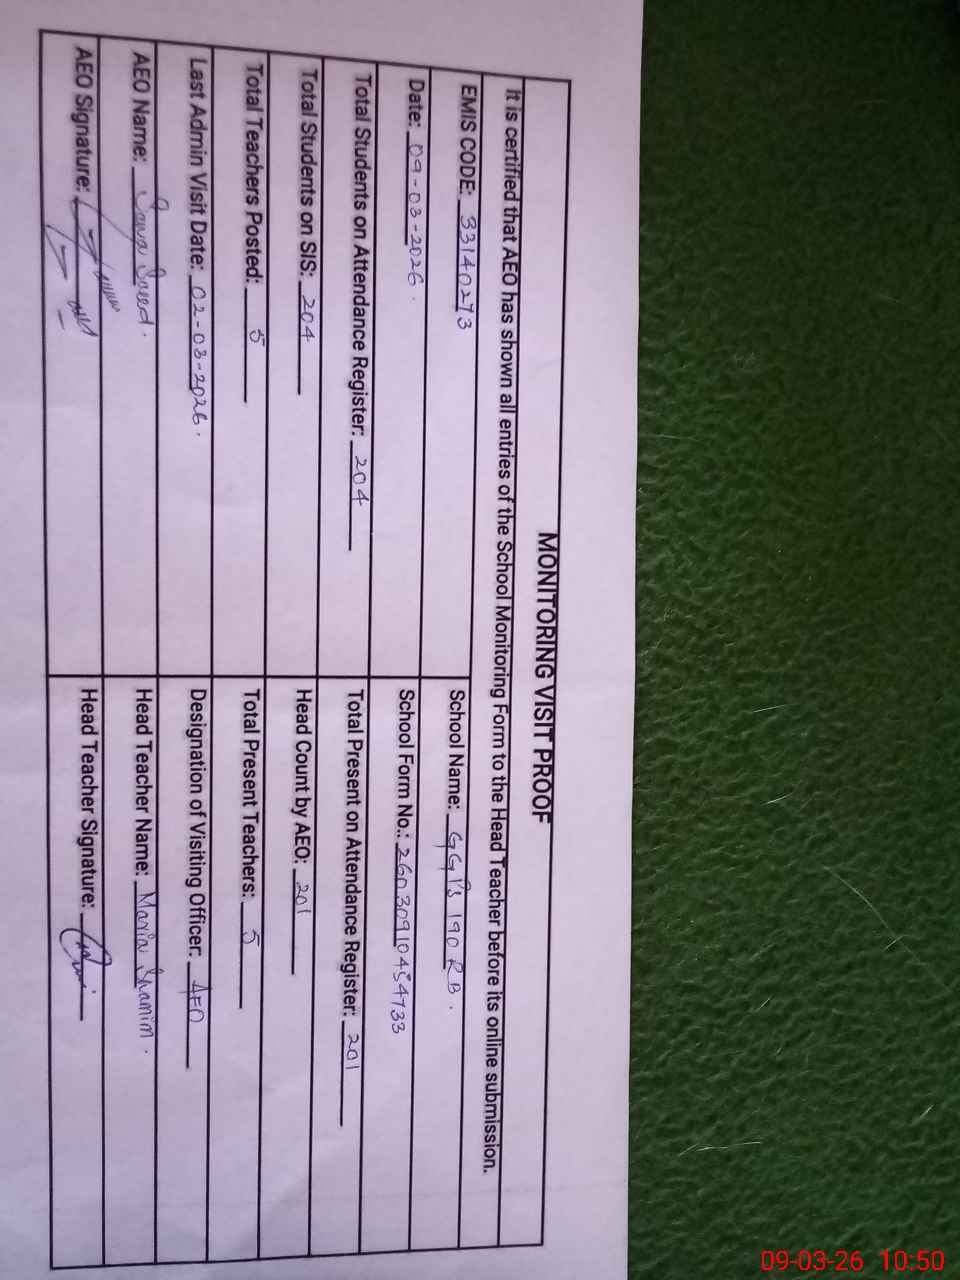 MONITORING VISIT PROOF
It is certified that AEO has shown all entries of the School Monitoring Form to the Head Teacher before its online submission.
EMIS CODE: 33140273 School Name: GGPS 190 RB.
Date: 09-03-2026. School Form No.: 26030910454733
Total Students on Attendance Register: 204 Total Present on Attendance Register: 201
Total Students on SIS: 204 Head Count by AEO: 201
Total Teachers Posted: 5 Total Present Teachers: 5
Last Admin Visit Date: 02-03-2026. Designation of Visiting Officer: AEO
AEO Name: Saeed. Head Teacher Name: Maria Shamim.
AEO Signature: Head Teacher Signature:
09-03-26 10:50